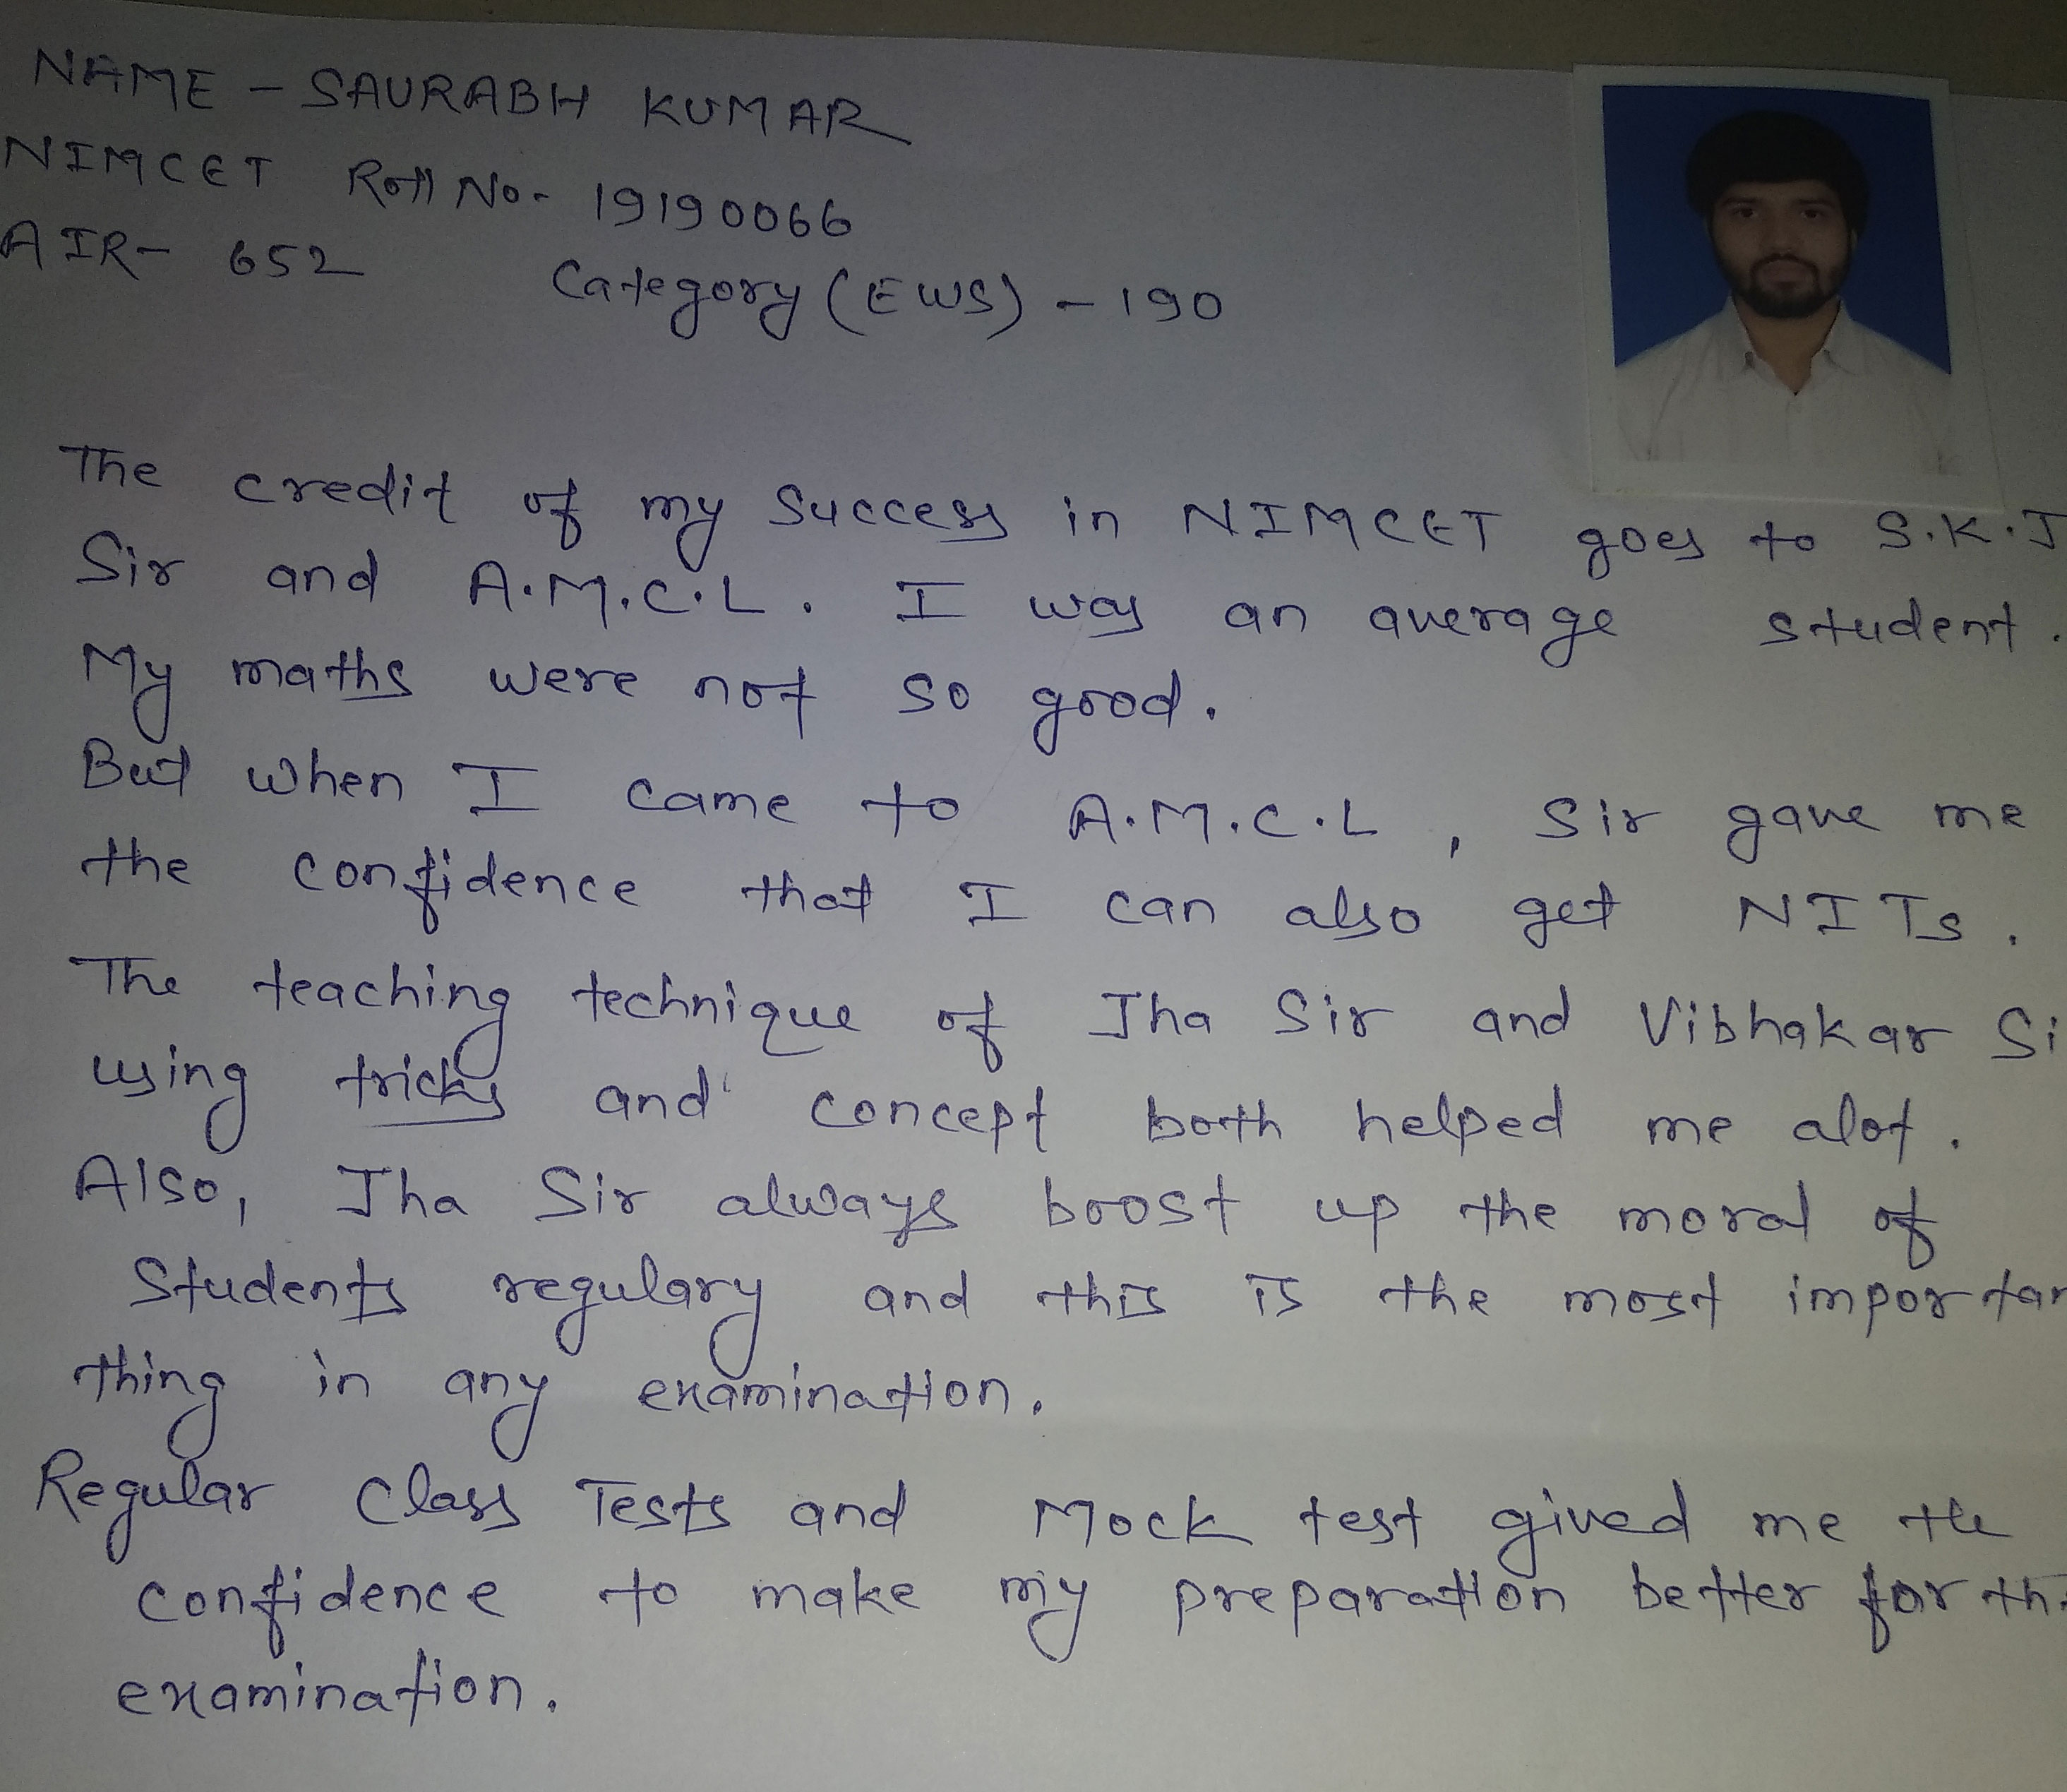 NAME - SAURABH KUMAR
NIMCET Roll No- 19190066
AIR- 652 Category (EWS) - 190
The credit of my Success in NIMCET goes to S.K.J
Sir and A.M.C.L. I was an average student.
My maths were not so good.
But when I came to A.M.C.L, Sir gave me
the confidence that I can also get NITs.
The teaching technique of Jha Sir and Vibhakar Si
using tricks and concept both helped me alot.
Also, Jha Sir always boost up the moral of
Students regulary and this is the most importan
thing in any examination.
Regular Class Tests and Mock test gived me the
confidence to make my preparation better for th
examination.